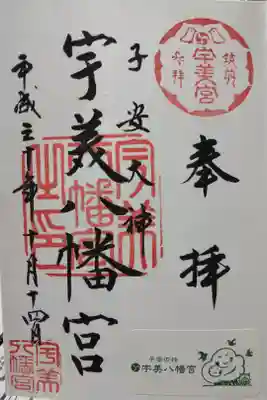 奉拝
筑前
宇美宮
参拝
子安大神
宇美八幡宮
宇美
八幡宮
之印
平成三十年十月十四日
宇美
八幡宮
子安の杜
宇美八幡宮